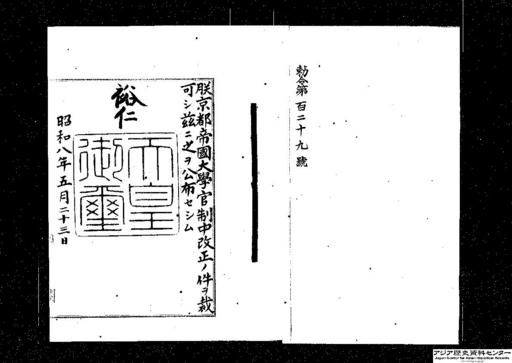 勅令第百二十九號
朕京都帝國大學官制中改正ノ件ヲ裁
可シ茲ニ之ヲ公布セシム
裕仁
天皇
御璽
昭和八年五月二十三日
アジア歴史資料センター
Japan Center for Asian Historical Records